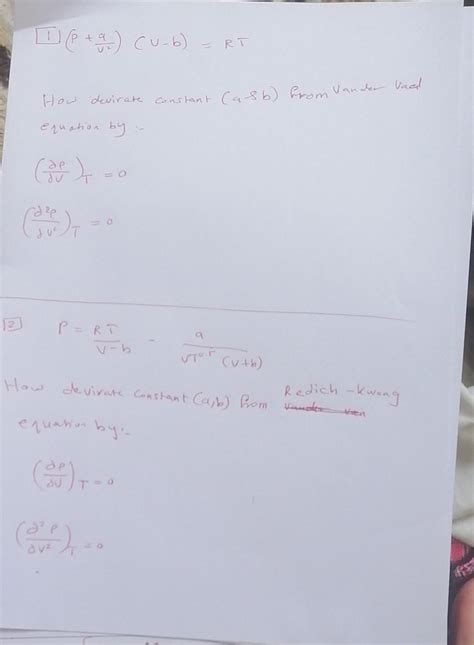 1 (P + a/v²) (v-b) = RT
How devirate constant (a & b) from Vander Vaal
equation by :-
(∂P/∂V)T = 0
(∂²P/∂V²)T = 0
2 P = RT/V-b - a/VT^0.5 (V+b)
How devirate constant (a,b) from Redich-kwong
equation by:-
(∂P/∂V)T = 0
(∂²P/∂V²)T = 0